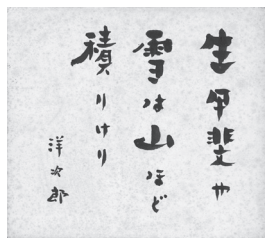 生甲斐や
雪は山ほど
積りけり
洋次郎